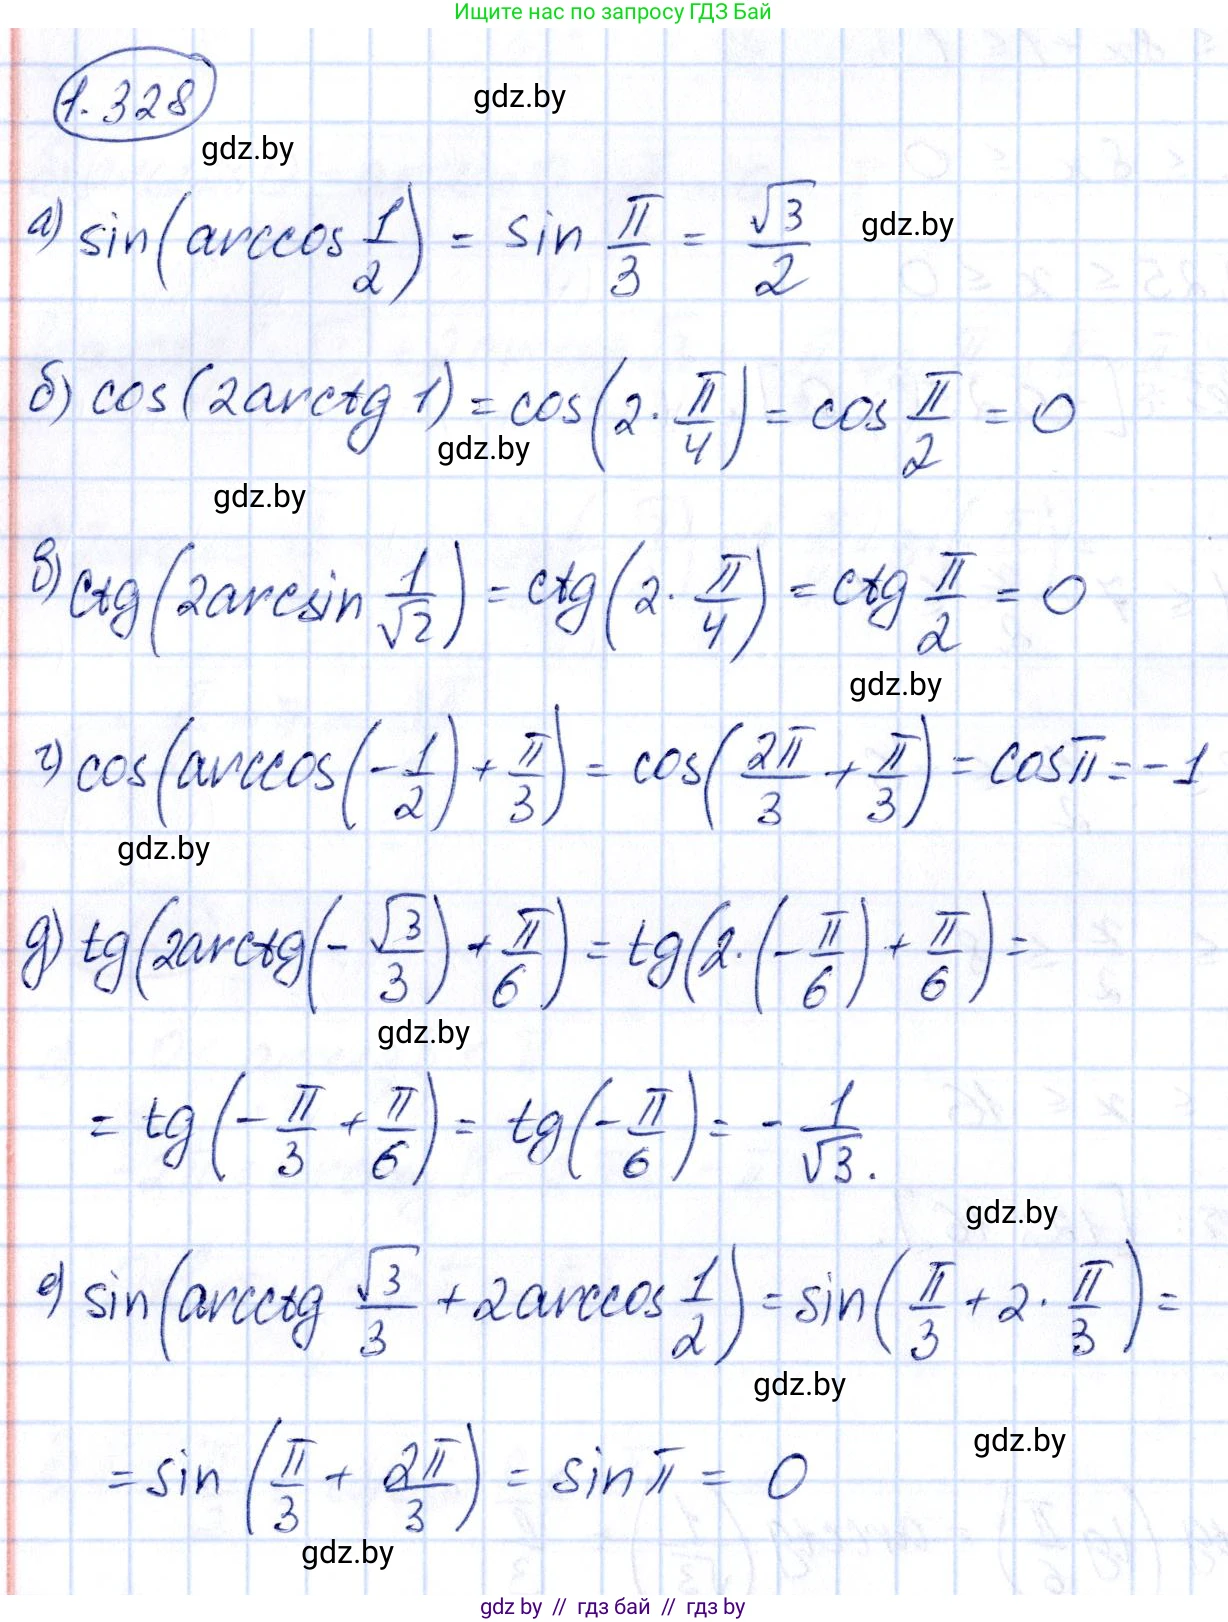 Ищите нас по запросу ГДЗ Бай
1.328
gdz.by
gdz.by
а) sin(arccos 1/2) = sin π/3 = √3/2
gdz.by
б) cos(2arctg 1) = cos(2·π/4) = cos π/2 = 0
gdz.by
gdz.by
в) ctg(2arcsin 1/√2) = ctg(2·π/4) = ctg π/2 = 0
gdz.by
г) cos(arccos(-1/2) + π/3) = cos(2π/3 + π/3) = cosπ = -1
gdz.by
д) tg(2arctg(-√3/3) + π/6) = tg(2·(-π/6) + π/6) =
gdz.by
= tg(-π/3 + π/6) = tg(-π/6) = -1/√3.
gdz.by
е) sin(arcctg √3/3 + 2arccos 1/2) = sin(π/3 + 2·π/3) =
gdz.by
gdz.by
= sin(π/3 + 2π/3) = sinπ = 0
gdz.by
gdz by // гдз бай // гдз by